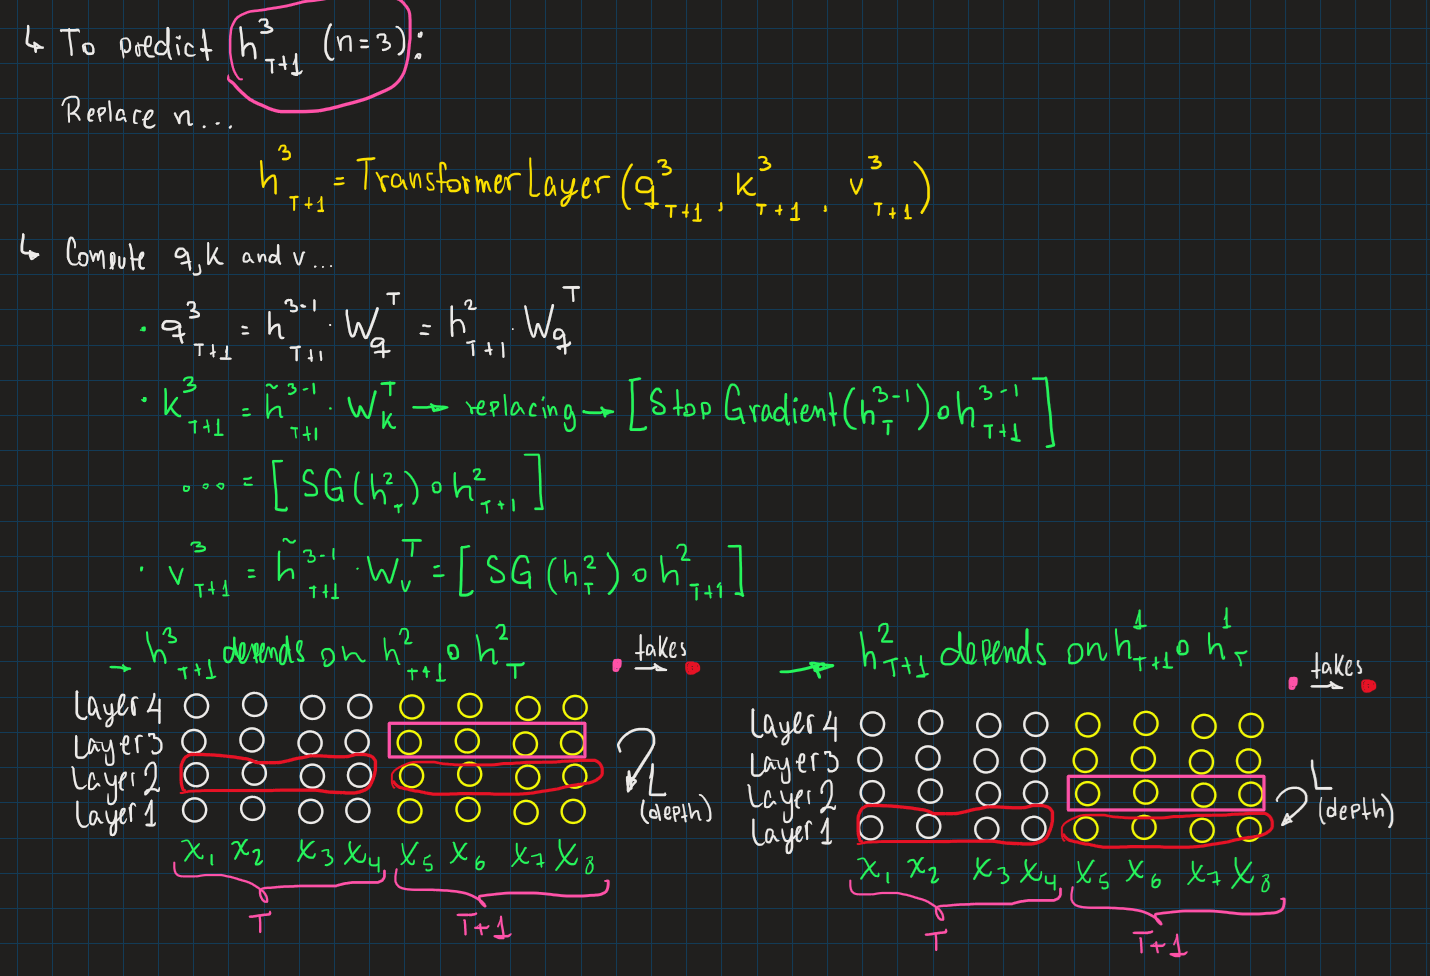 ↳ To predict h³_T+1 (n=3):
Replace n...
h³_T+1 = TransformerLayer (q³_T+1, k³_T+1, v³_T+1)
↳ Compute q,k and v...
· q³_T+1 = h³⁻¹_T+1 · W_q^T = h²_T+1 · W_q^T
· k³_T+1 = h̃³⁻¹_T+1 · W_k^T → replacing → [Stop Gradient(h³⁻¹_T) ∘ h³⁻¹_T+1]
... = [SG(h²_T) ∘ h²_T+1]
· v³_T+1 = h̃³⁻¹_T+1 · W_v^T = [SG(h²_T) ∘ h²_T+1]
→ h³_T+1 depends on h²_T+1 ∘ h²_T
takes
Layer 4
Layer 3
Layer 2
Layer 1
L
(depth)
x₁ x₂ x₃ x₄ x₅ x₆ x₇ x₈
T T+1
→ h²_T+1 depends on h¹_T+1 ∘ h¹_T
takes
Layer 4
Layer 3
Layer 2
Layer 1
L
(depth)
x₁ x₂ x₃ x₄ x₅ x₆ x₇ x₈
T T+1